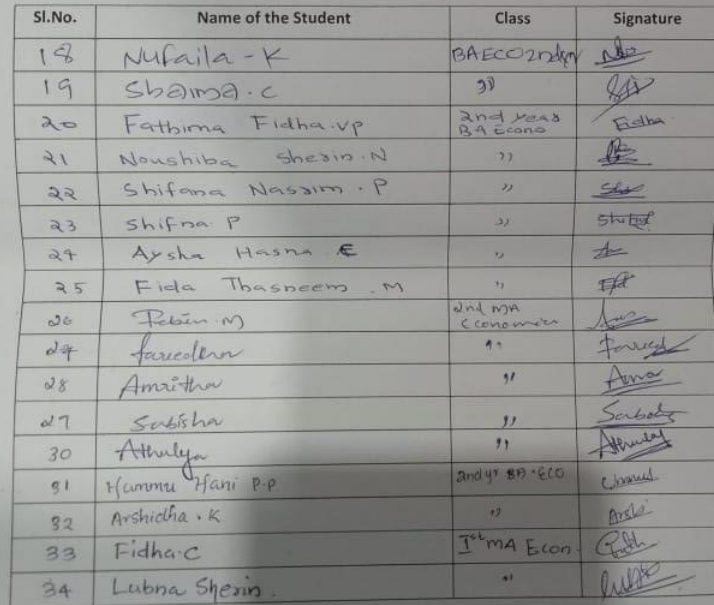 Sl.No. Name of the Student Class Signature
18 Nufaila - K BA ECO 2nd yr
19 Shaima . C ,,
20 Fathima Fidha . VP 2nd year BA Econo Fidha
21 Noushiba Sherin . N ,,
22 Shifana Nasrim . P ,,
23 Shifna P ,,
24 Aysha Hasna E ,,
25 Fida Thasneem . M ,,
26 M 2nd MA Economics
27 Fareedha ,, Fareed
28 Amritha ,,
27 Sabisha ,,
30 Athulya ,,
31 Hammu Hani P.P 2nd yr BA . ECO
32 Arshidha . K ,,
33 Fidha . C Ist MA Econ
34 Lubna Sherin . ,,